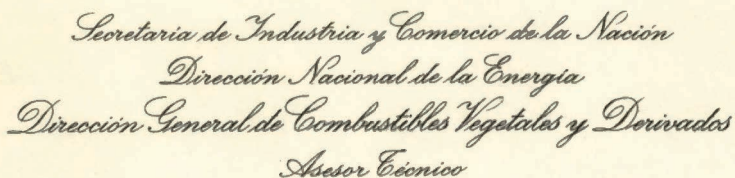 Secretaría de Industria y Comercio de la Nación
Dirección Nacional de la Energía
Dirección General de Combustibles Vegetales y Derivados
Asesor Técnico